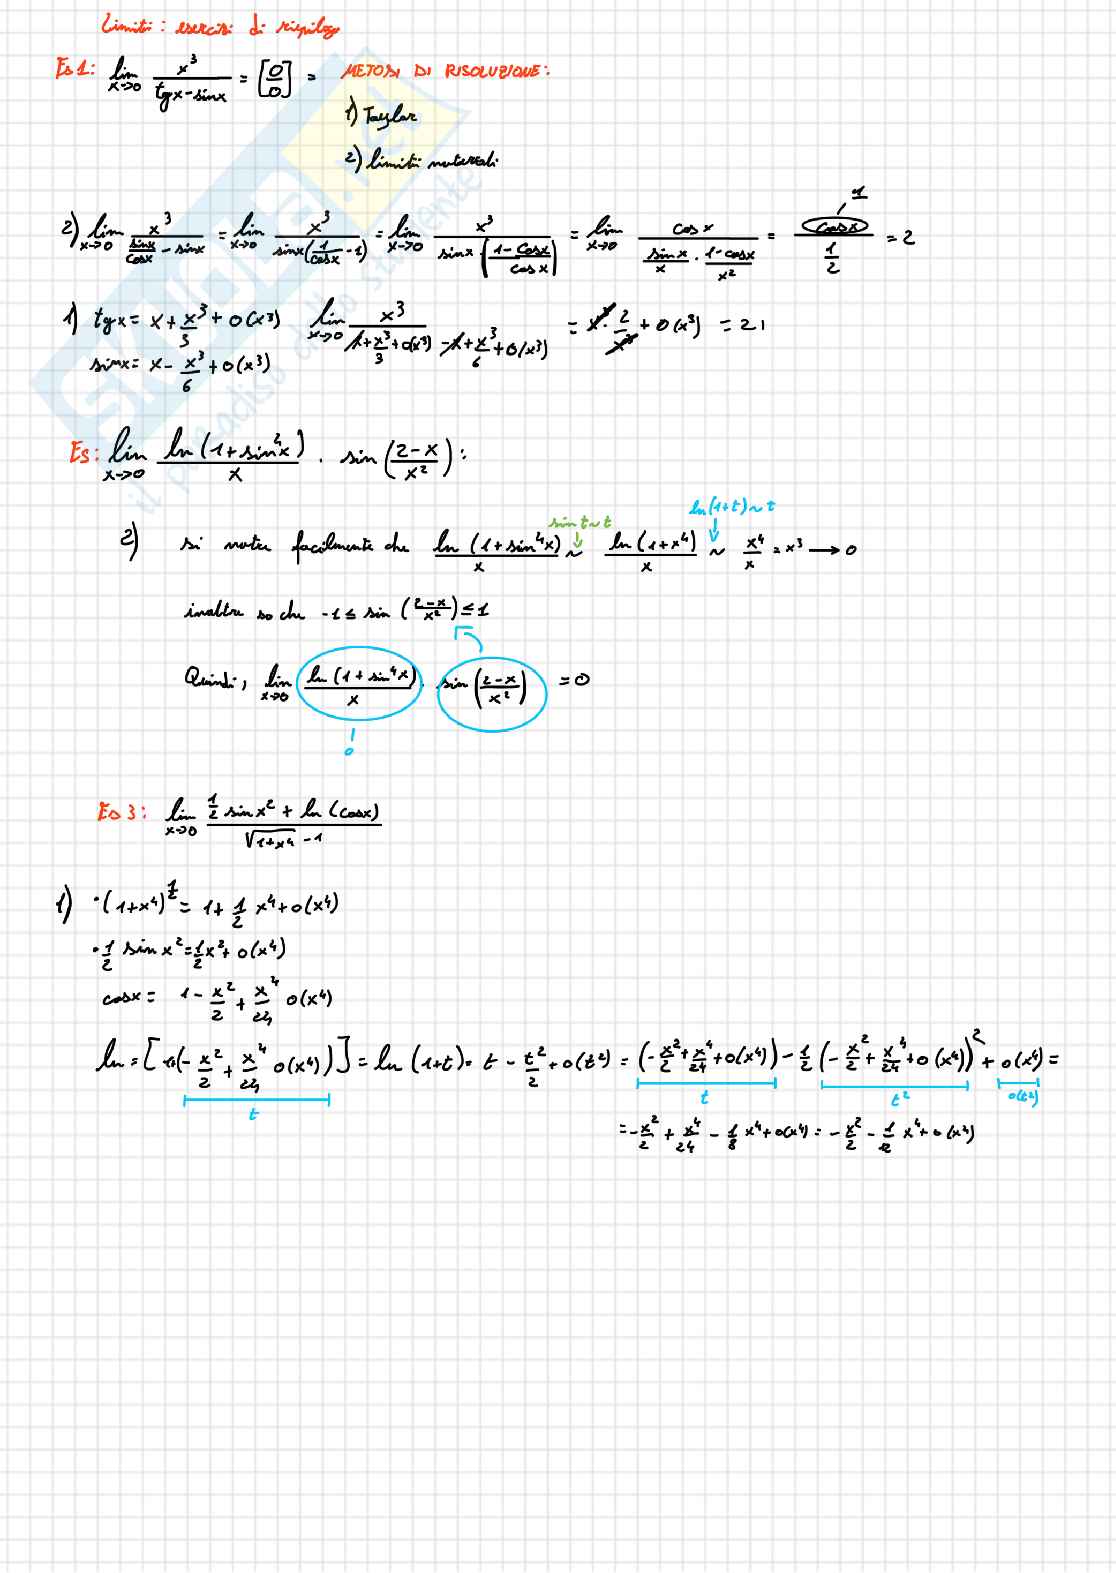 Limiti: esercizi di riepilogo
Es 1: lim x→0 x³/(tgx - sinx) = [0/0] = METODI DI RISOLUZIONE:
1) Taylor
2) limiti notevoli
2) lim x→0 x³/(sinx/cosx - sinx) = lim x→0 x³/(sinx(1/cosx - 1)) = lim x→0 x³/(sinx·((1-cosx)/cosx)) = lim x→0 cosx/(sinx/x · (1-cosx)/x²) = cosx/(1/2) = 2
1
1) tgx = x + x³/3 + o(x³) lim x→0 x³/(x + x³/3 + o(x³) - x + x³/6 + o(x³)) = x³ · 2/x³ + o(x³) = 2
sinx = x - x³/6 + o(x³)
Es: lim x→0 ln(1+sin⁴x)/x · sin((2-x)/x²):
ln(1+t)~t
sin t~t
2) si nota facilmente che ln(1+sin⁴x)/x ~ ln(1+x⁴)/x ~ x⁴/x = x³ → 0
inoltre so che -1 ≤ sin((2-x)/x²) ≤ 1
Quindi, lim x→0 ln(1+sin⁴x)/x · sin((2-x)/x²) = 0
0
Es 3: lim x→0 (1/2 sinx² + ln(cosx))/(√(1+x⁴) - 1)
1) · (1+x⁴)^½ = 1 + 1/2 x⁴ + o(x⁴)
· 1/2 sinx² = 1/2 x² + o(x⁴)
cosx = 1 - x²/2 + x⁴/24 o(x⁴)
ln = [1(-x²/2 + x⁴/24 o(x⁴))] = ln(1+t) = t - t²/2 + o(t²) = (-x²/2 + x⁴/24 + o(x⁴)) - 1/2 (-x²/2 + x⁴/24 + o(x⁴))² + o(x⁴) =
t t t² o(t²)
= -x²/2 + x⁴/24 - 1/8 x⁴ + o(x⁴) = -x²/2 - 1/12 x⁴ + o(x⁴)